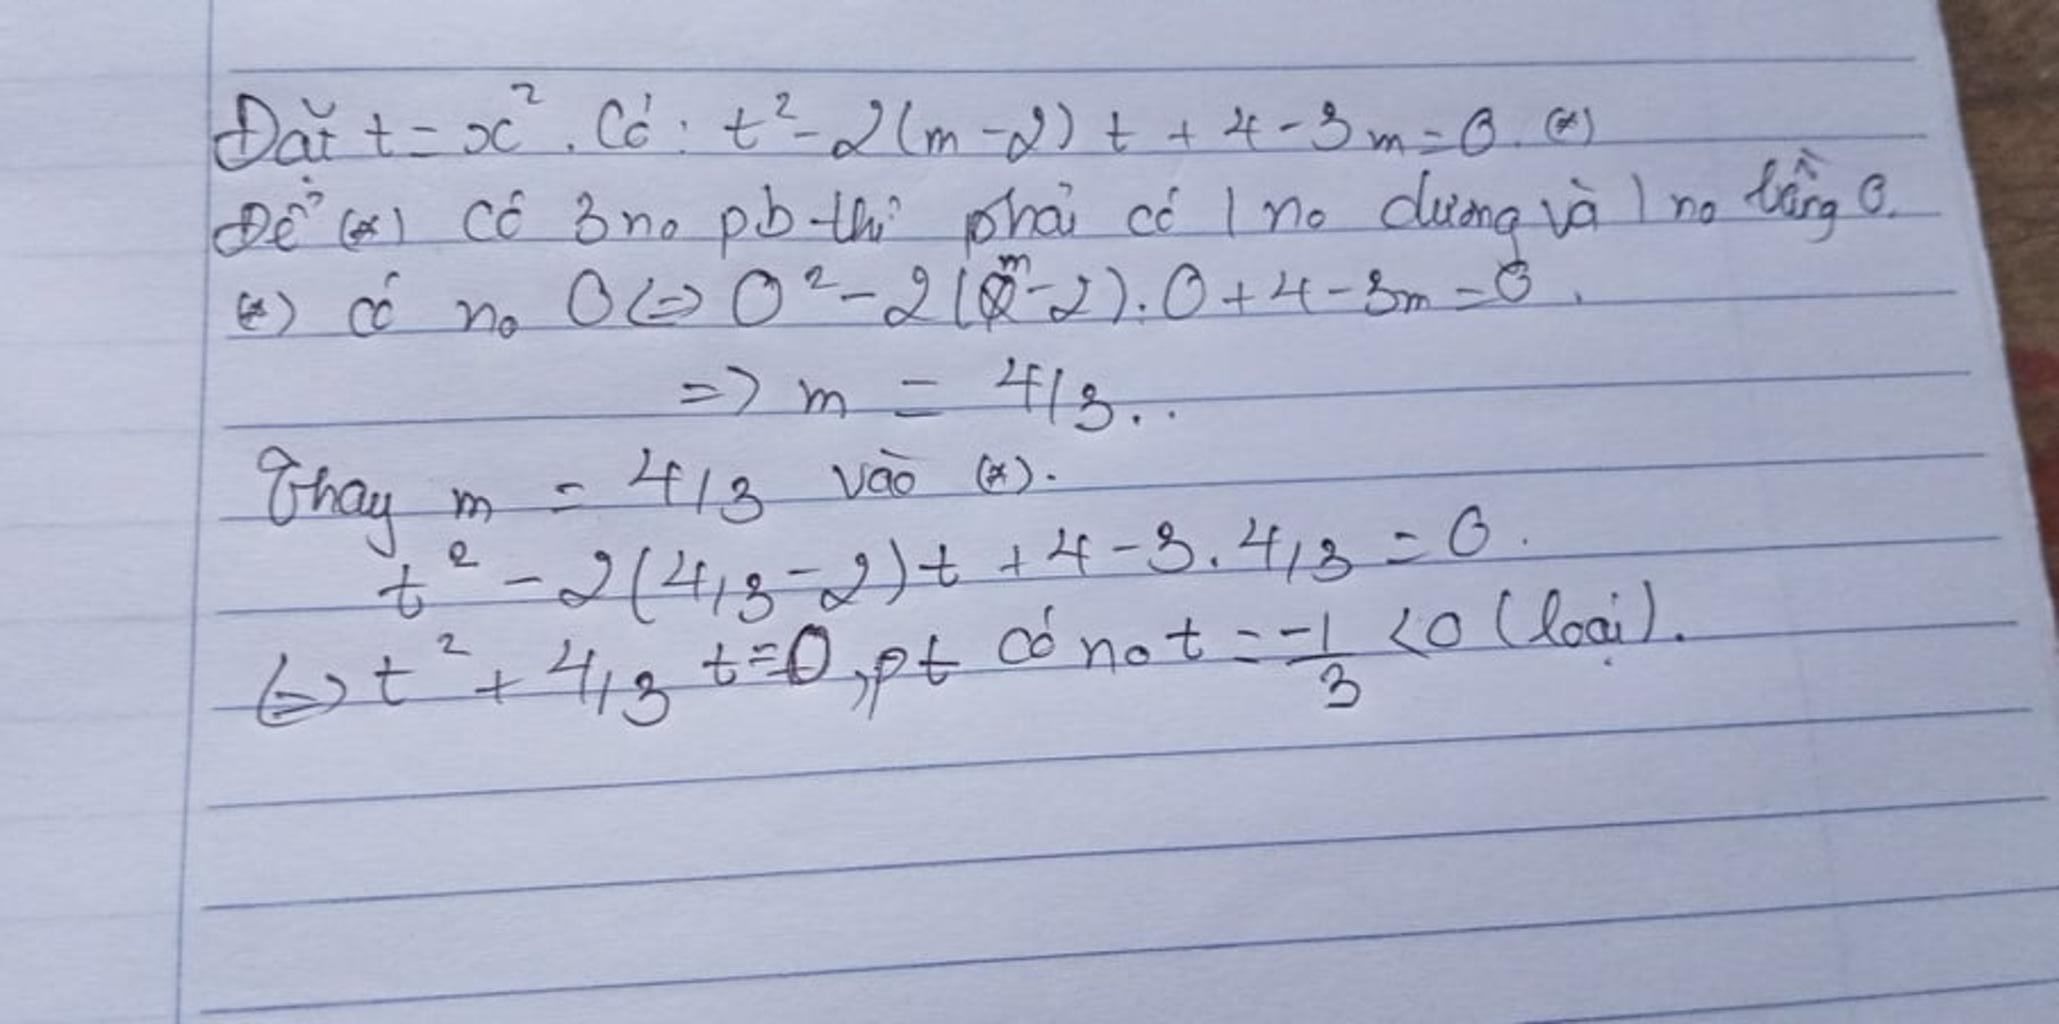 Đặt t = x². Có: t² - 2(m-2)t + 4 - 3m = 0. (*)
Để (*) có 3 no pb thì phải có 1 no dương và 1 no bằng 0.
(*) có no 0 <=> 0² - 2(m-2).0 + 4 - 3m = 0.
=> m = 4/3..
Thay m = 4/3 vào (*).
t² - 2(4/3 - 2)t + 4 - 3.4/3 = 0.
<=> t² + 4/3 t = 0, pt có no t = -1/3 < 0 (loại).